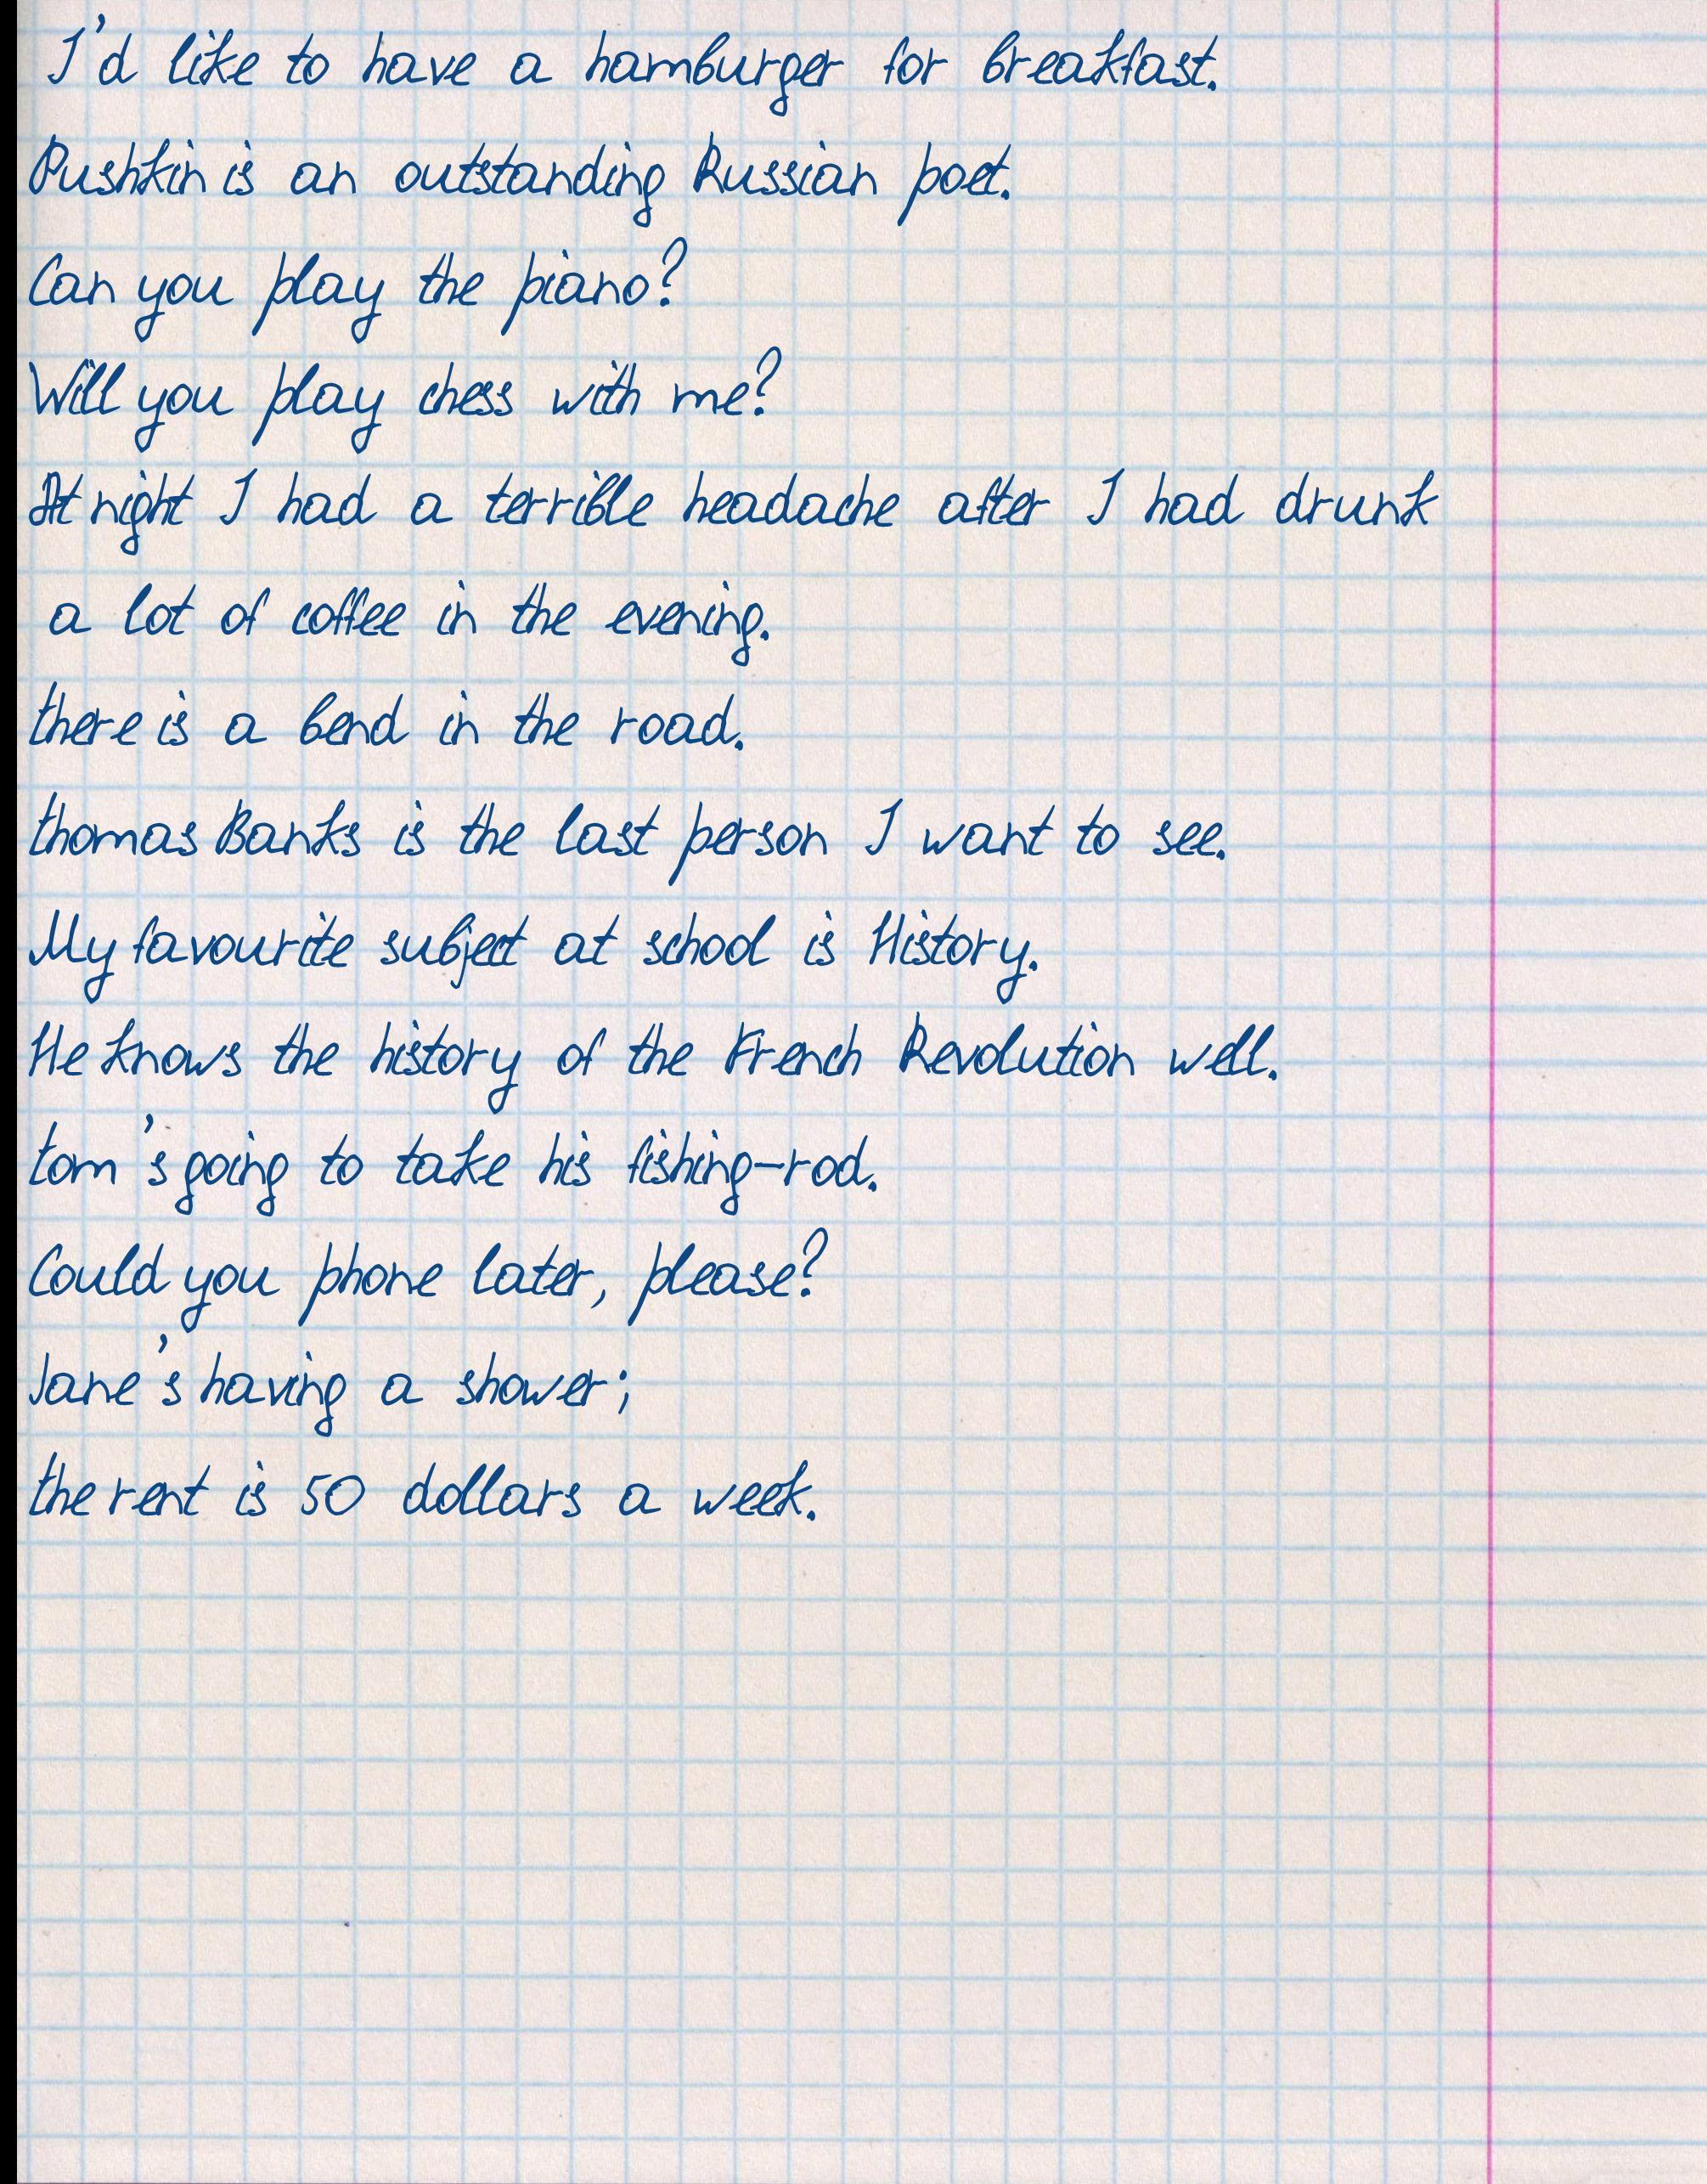 I'd like to have a hamburger for breakfast.
Pushkin is an outstanding Russian poet.
Can you play the piano?
Will you play chess with me?
At night I had a terrible headache after I had drunk
a lot of coffee in the evening.
there is a bend in the road.
thomas Banks is the last person I want to see.
My favourite subject at school is History.
He knows the history of the French Revolution well.
tom's going to take his fishing-rod.
Could you phone later, please?
Jane's having a shower;
the rent is 50 dollars a week.